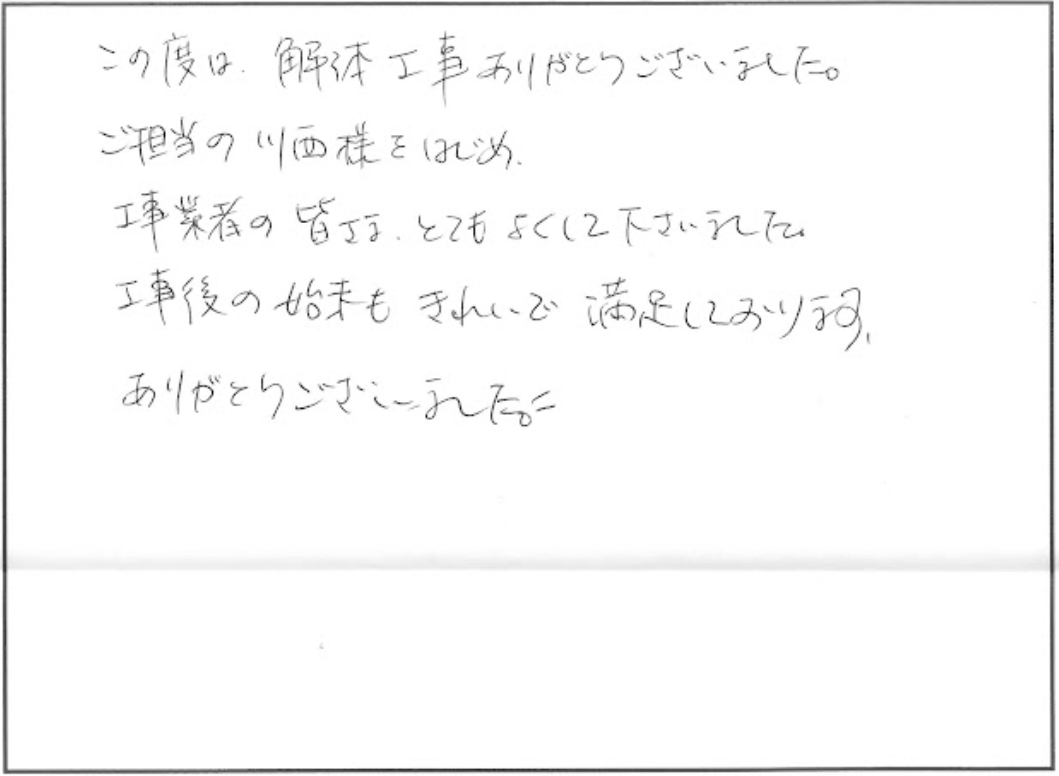 この度は、解体工事ありがとうございました。
ご担当の川西様をはじめ、
工事業者の皆さま、とてもよくして下さいました。
工事後の始末もきれいで満足しております。
ありがとうございました。